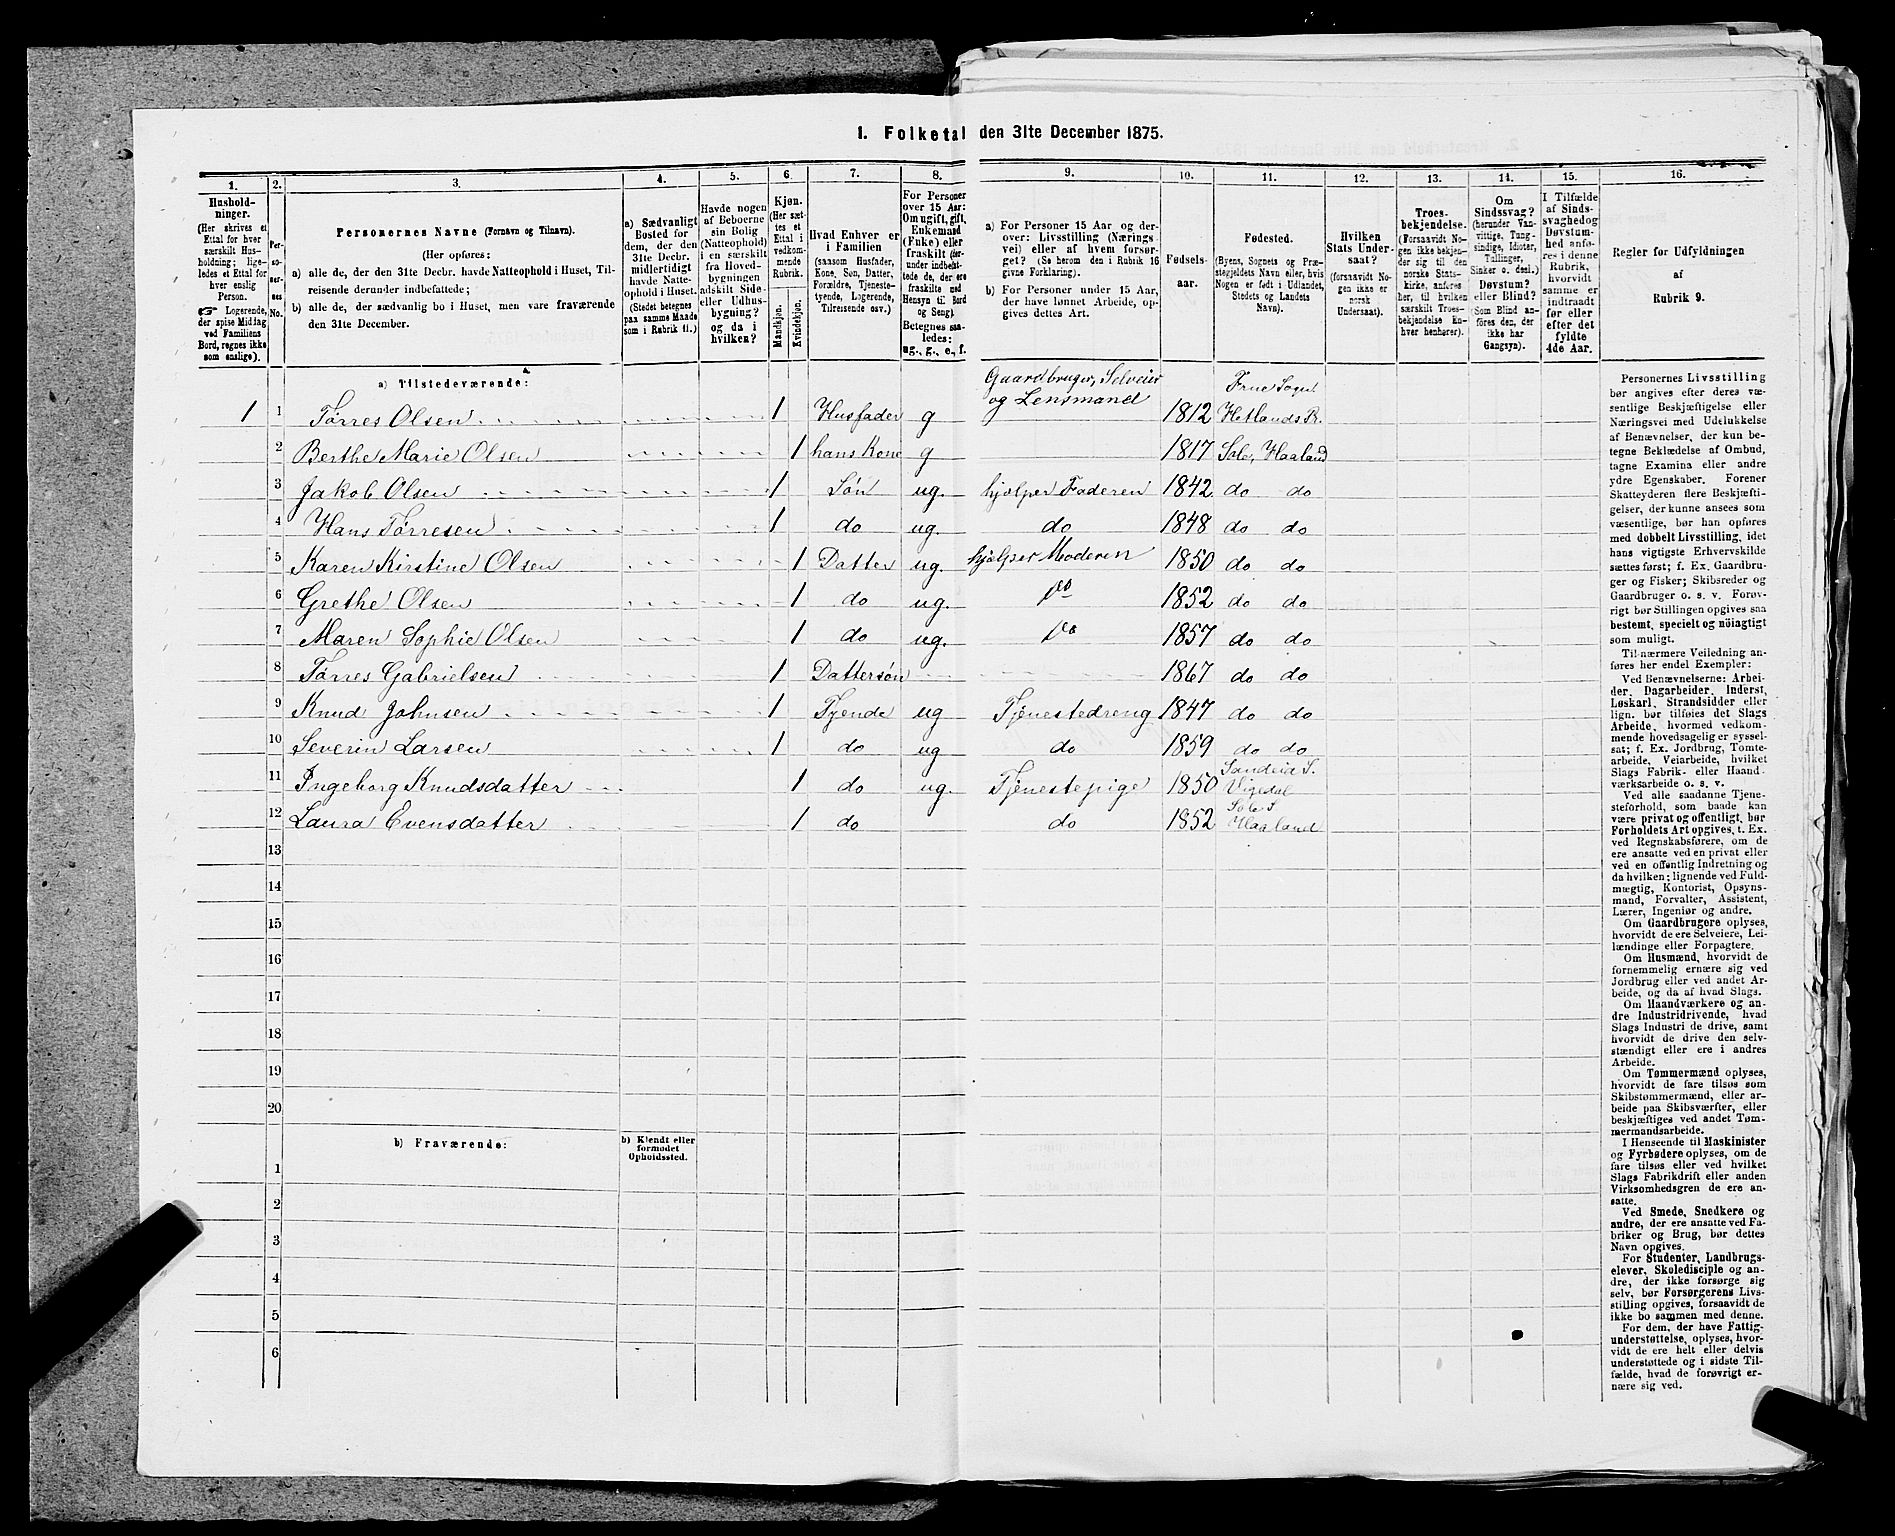 1. Folketal den 31te December 1875.
1.
2.
3.
4.
5.
6.
7.
8.
9.
10.
11.
12.
13.
14.
15.
16.
Husholdninger.
(Her skrives et
Ettal for hver
særskilt Husholdning;
ligeledes et Ettal for
hver enslig
Person.
☞ Logerende,
der spise Middag
ved Familiens
Bord, regnes ikke
som enslige).
Personernes No.
Personernes Navne (Fornavn og Tilnavn).
(Her opføres:
a) alle de, der den 31te Decbr. havde Natteophold i Huset, Tilreisende derunder indbefattede;
b) alle de, der sædvanlig bo i Huset, men vare fraværende
den 31te December.
a) Sædvanligt
Bosted for
dem, der den
31te Decbr.
midlertidigt
havde Natteophold
i Huset.
(Stedet betegnes
paa samme Maade
som i Rubrik 11.)
Havde nogen
af Beboerne
sin Bolig
(Natteophold)
i en særskilt
fra Hovedbygningen
adskilt Side-
eller Udhusbygning?
og da i
hvilken?
Kjøn.
(Her sættes
et
Ettal i
vedkommende
Rubrik.
Mandkjøn.
Kvindekjøn.
Hvad Enhver er
i Familien
(saasom Husfader,
Kone, Søn, Datter,
Forældre, Tjenestetyende,
Logerende,
Tilreisende osv.)
For Personer
over 15 Aar:
Om ugift, gift,
Enkemand
(Enke) eller
fraskilt (herunder
indbefattede
de, der ere
fraskilte med
Hensyn til Bord
og Seng).
Betegnes saaledes:
ug., g., e., f.
a) For Personer 15 Aar og derover:
Livsstilling (Næringsvei)
eller af hvem forsørget?
(Se herom den i Rubrik 16
givne Forklaring).
b) For Personer under 15 Aar,
der have lønnet Arbeide, opgives
dettes Art.
Fødselsaar.
Fødested.
(Byens, Sognets og Præstegjeldets
Navn eller, hvis
Nogen er født i Udlandet,
Stedets og Landets
Navn).
Hvilken
Stats Undersaat?
(forsaavidt Nogen
ikke er
norsk
Undersaat).
Troesbekjendelse.
(Forsaavidt Nogen
ikke bekjender
sig til den
norske Statskirke,
anføres
her, til hvilken
særskilt Troesbekjendelse
Enhver
henhører).
Om
Sindssvag?
(herunder Vanvittige,
Tungsindige,
Idioter,
Tullinger,
Sinker o. desl.)
Døvstum?
eller Blind?
(Som Blind anføres
den, der
ikke har
Gangsyn).
I Tilfælde
af Sindssvaghed
og
Døvstumhed
anføres
i denne
Rubrik,
hvorvidt
samme er
indtraadt
før eller
efter det
fyldte
4de Aar.
Regler for Udfyldningen
af
Rubrik 9.
a) Tilstedeværende:
1 1 Tørres Olsen 1 Husfader g Gaardbruger, Selveier og Lensmand 1812 Frue Sogn Hetlands P.
2 Berthe Marie Olsen 1 hans Kone g 1817 Sole, Haaland
3 Jakob Olsen 1 Søn ug. hjælper Faderen 1842 do do
4 Hans Tørresen 1 do ug. do 1848 do do
5 Karen Kirstine Olsen 1 Datter ug. hjælper Moderen 1850 do do
6 Grethe Olsen 1 do ug. do 1852 do do
7 Maren Sophie Olsen 1 do ug. do 1857 do do
8 Tørres Gabrielsen 1 Dattersøn 1867 do do
9 Knud Johnsen 1 Tyende ug Tjenestedreng 1847 do do
10 Severin Larsen 1 do ug do 1859 do do
11 Ingeborg Knudsdatter 1 do ug. Tjenestepige 1850 Sandeid S. Vigedal
12 Laura Evensdatter 1 do do 1852 Sole S Haaland
13
14
15
16
17
18
19
20
b) Fraværende:
b) Kjendt eller
formodet
Opholdssted.
1
2
3
4
5
6
Personernes Livsstilling
bør angives efter deres væsentlige
Beskjæftigelse eller
Næringsvei med Udelukkelse
af Benævnelser, der kun betegne
Beklædelse af Ombud,
tagne Examina eller andre
ydre Egenskaber. Forener
Skatteyderen flere Beskjæftigelser,
der kunne ansees som
væsentlige, bør han opføres
med dobbelt Livsstilling, idet
hans vigtigste Erhvervskilde
sættes først; f. Ex. Gaardbruger
og Fisker; Skibsreder og
Gaardbruger o. s. v. Forøvrigt
bør Stillingen opgives saa
bestemt, specielt og nöiagtigt
som muligt.
Til nærmere Veiledning anføres
her endel Exempler:
Ved Benævnelserne: Arbeider,
Dagarbeider, Inderst,
Løskarl, Strandsidder eller
lign. bør tilføies det Slags
Arbeide, hvormed vedkommende
hovedsagelig er sysselsat;
f. Ex. Jordbrug, Tomtearbeide,
Veiarbeide, hvilket
Slags Fabrik- eller Haandværksarbeide
o. s. v.
Ved alle saadanne Tjenesteforhold,
som baade kan
være privat og offentligt, bør
Forholdets Art opgives, t. Ex.
ved Regnskabsførere, om de
ere ansatte ved en privat eller
ved en offentlig Indretning og
da hvilken; lignende ved Fuldmægtig,
Kontorist, Opsynsmand,
Forvalter, Assistent,
Lærer, Ingeniør og andre.
Om Gaardbrugere oplyses,
hvorvidt de ere Selveiere, Leilændinge
eller Forpagtere.
Om Husmænd, hvorvidt de
fornemmelig ernære sig ved
Jordbrug eller ved andet Arbeide,
og da af hvad Slags.
Om Haandværkere og andre
Industridrivende, hvad
Slags Industri de drive, samt
hvorvidt de drive den selvstændigt
eller ere i andres
Arbeide.
Om Tømmermænd oplyses,
hvorvidt de fare tilsøs som
Skibstømmermænd, eller arbeide
paa Skibsværfter, eller
beskjæftiges ved andet Tømmermandsarbeide.
I Henseende til Maskinister
og Fyrbødere oplyses, om de
fare tilsøs eller ved hvilket
Slags Fabrikdrift eller anden
Virksomhedsgren de ere ansatte.
Ved Smede, Snedkere og
andre, der ere ansatte ved Fabriker
og Brug, bør dettes
Navn opgives.
For Studenter, Landbrugselever,
Skoledisciple og andre,
der ikke forsørge sig
selv, bør Forsørgerens Livsstilling
opgives, forsaavidt de
ikke bo sammen med denne.
For dem, der have Fattigunderstøttelse,
oplyses, hvorvidt
de ere helt eller delvis
understøttede og i sidste Tilfælde,
hvad de forøvrigt ernære
sig ved.